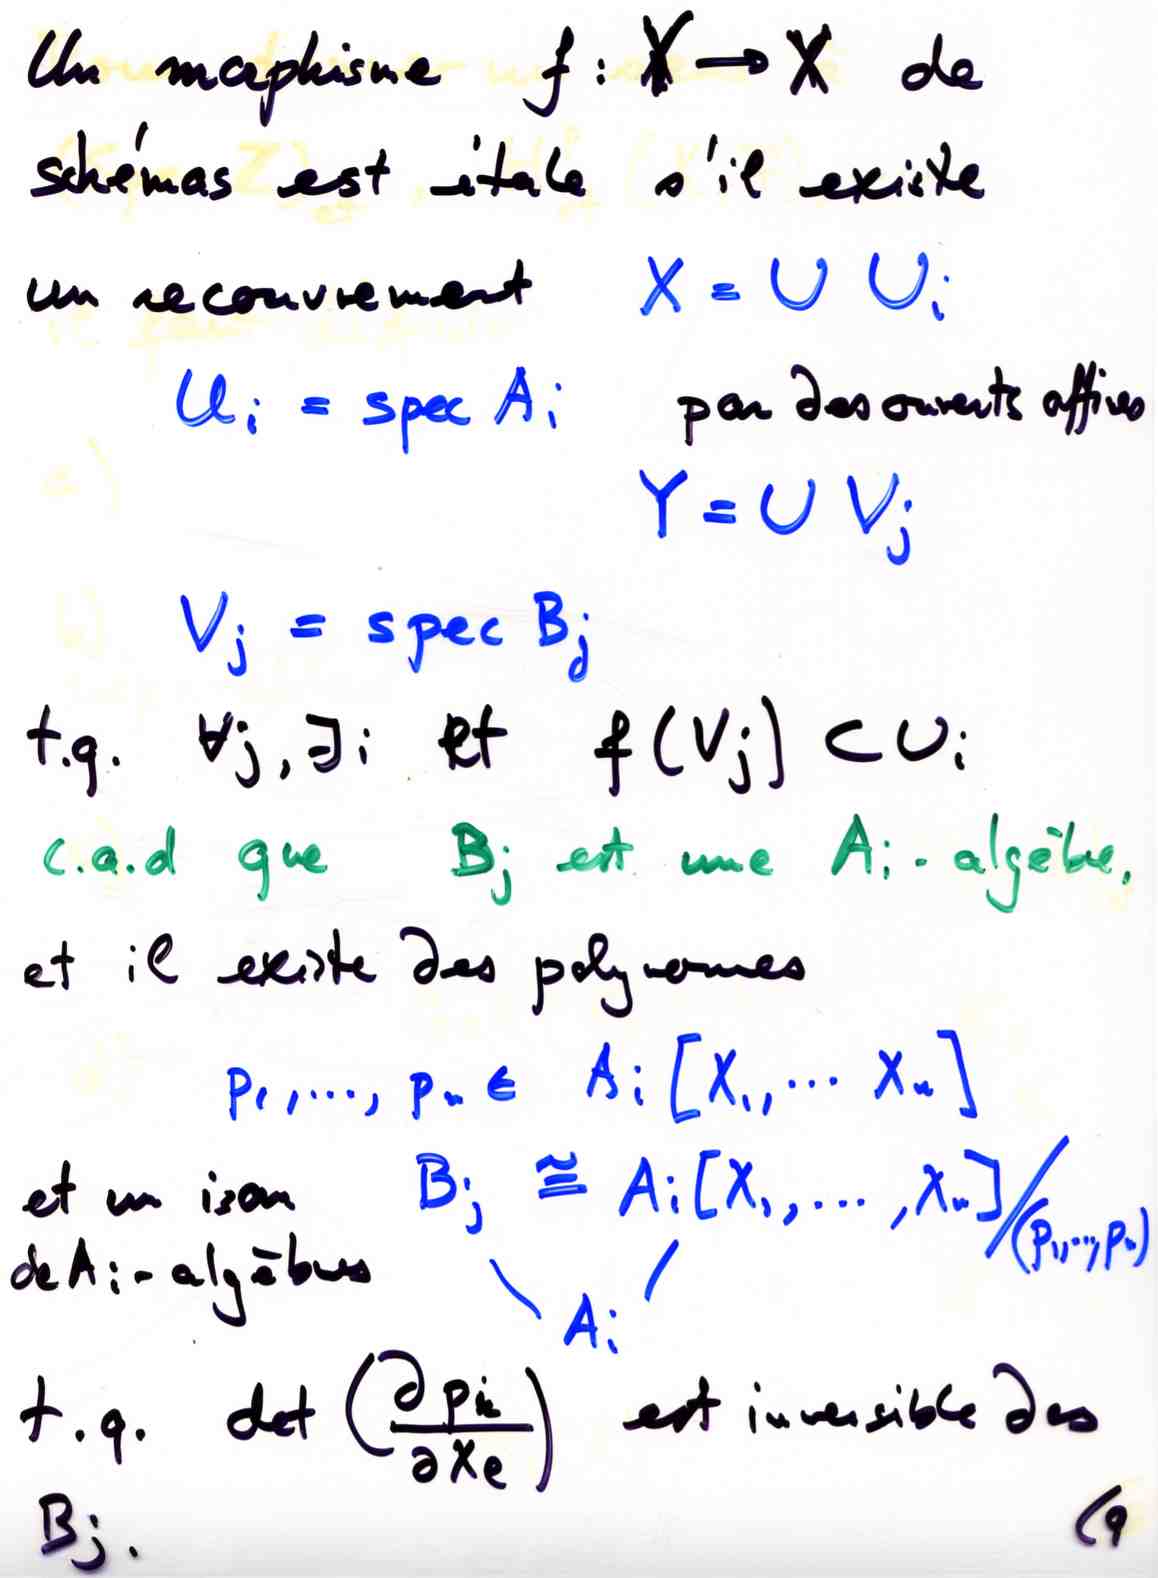 Un morphisme f : Y → X de
schémas est étale s'il existe
un recouvrement X = ∪ U_i
U_i = spec A_i par des ouverts affines
Y = ∪ V_j
V_j = spec B_j
t.q. ∀j, ∃i et f(V_j) ⊂ U_i
c.a.d que B_j est une A_i-algèbre,
et il existe des polynomes
p_1, ..., p_n ∈ A_i [X_1, ... X_n]
et un isom B_j ≅ A_i[X_1, ..., X_n]/(p_1, ..., p_n)
de A_i-algèbres
A_i
t.q. det (∂p_k/∂X_e) est inversible des
B_j.
(9